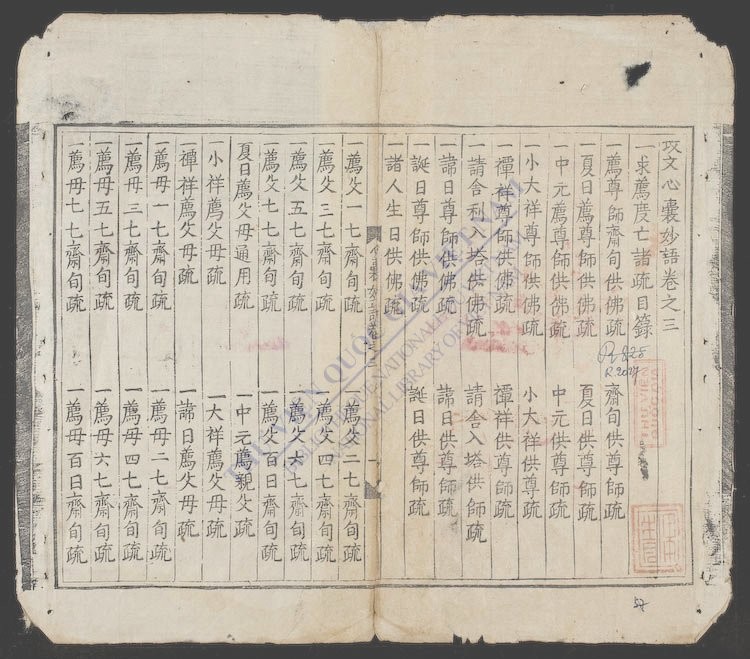 攻文心囊妙語卷之三
一求薦度亡諸疏目録
一薦尊師齋旬供佛疏 齋旬供尊師疏
一夏日薦尊師供佛疏 夏日供尊師疏
一中元薦尊師供佛疏 中元供尊師疏
一小大祥尊師供佛疏 小大祥供尊疏
一禫祥尊師供佛疏 禫祥供尊師疏
一請舍利入塔供佛疏 請舍入塔供師疏
一諱日尊師供佛疏 諱日供尊師疏
一誕日尊師供佛疏 誕日供尊師疏
一諸人生日供佛疏
一薦父一七齋旬疏 一薦父二七齋旬疏
一薦父三七齋旬疏 一薦父四七齋旬疏
一薦父五七齋旬疏 一薦父六七齋旬疏
一薦父七七齋旬疏 一薦父百日齋旬疏
夏日薦父母通用疏 一中元薦親父疏
一小祥薦父母疏 一大祥薦父母疏
禫祥薦父母疏 一諱日薦父母疏
一薦母一七齋旬疏 一薦母二七齋旬疏
一薦母三七齋旬疏 一薦母四七齋旬疏
一薦母五七齋旬疏 一薦母六七齋旬疏
一薦母七七齋旬疏 一薦母百日齋旬疏
R.825
R.2027
THƯ VIỆN QUỐC GIA VIỆT NAM
THE NATIONAL LIBRARY OF VIETNAM
57